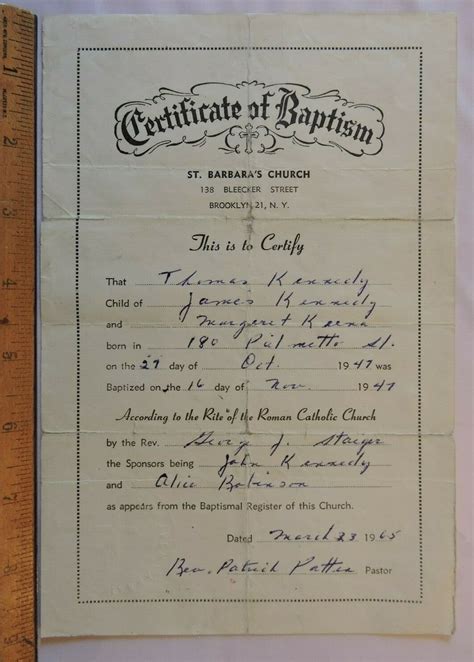 Certificate of Baptism
ST. BARBARA'S CHURCH
138 BLEECKER STREET
BROOKLYN 21, N. Y.
This is to Certify
That Thomas Kennedy
Child of James Kennedy
and Margaret
born in 180 Palmetto St.
on the 27 day of Oct. 1947 was
Baptized on the 16 day of Nov. 1947
According to the Rite of the Roman Catholic Church
by the Rev. George J. Staiger
the Sponsors being John Kennedy
and Alice Robinson
as appears from the Baptismal Register of this Church.
Dated March 23 1965
Rev. Patrick Pastor
1
2
3
4
5